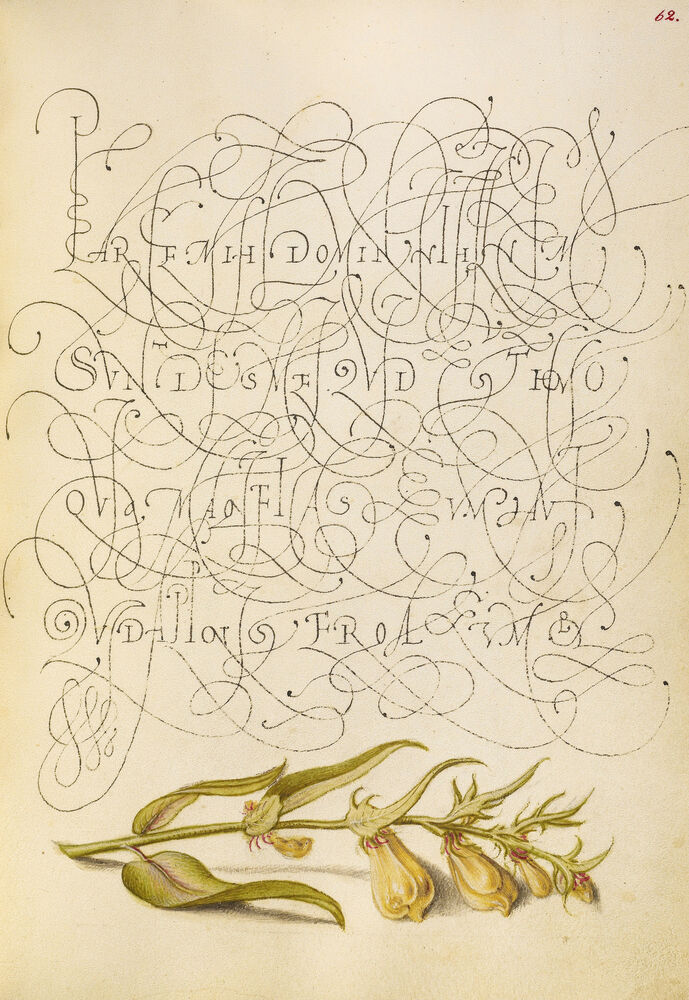 62.
PARCE MIHI DOMINE NIHIL ENIM
SVNT DIES MEI QVID EST HOMO
QVIA MAGNIFICAS EVM AVT
QVID APPONIS ERGA EVM &